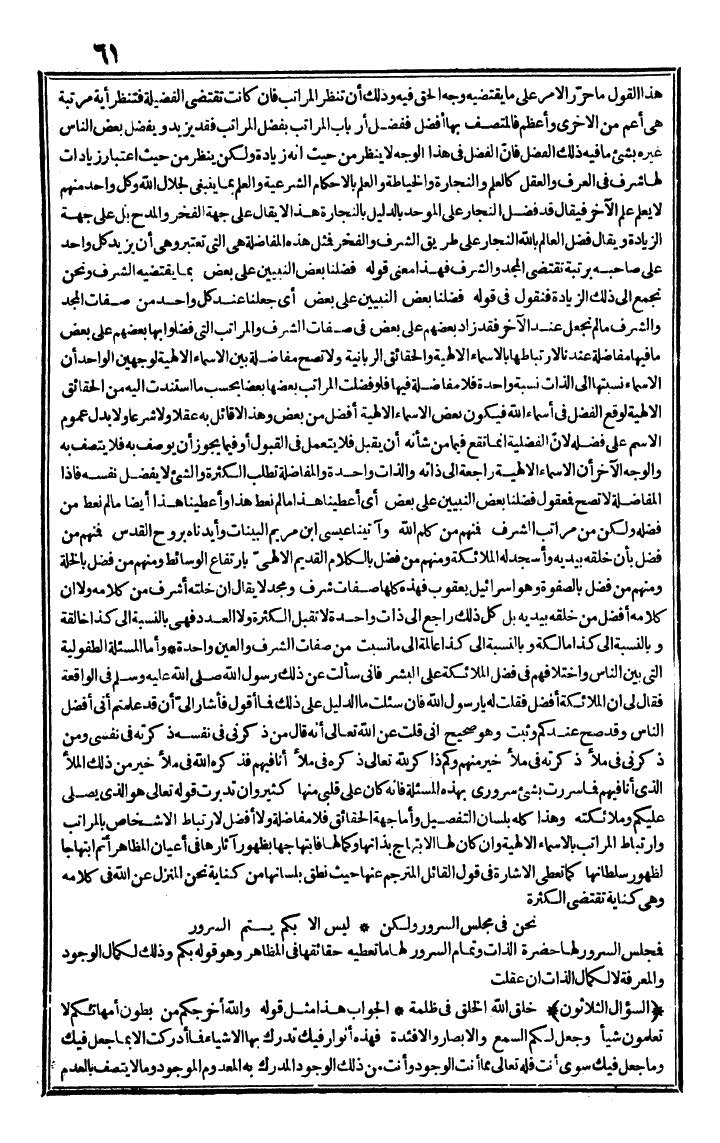 ٦١
هذا القول ما حرّر الامر على ما يقتضيه وجه الحق فيه وذلك أن تنظر المراتب فان كانت تقتضى الفضيلة فتنظر أية مرتبة
هى أعم من الاخرى وأعظم فالمتصف بها أفضل ففضل أرباب المراتب بفضل المراتب فقد يزيد ويفضل بعض الناس
غيره بشئ ما فيه ذلك الفضل فانّ الفضل فى هذا الوجه لا ينظر من حيث انه زيادة ولكن ينظر من حيث اعتبار زيادات
لها شرف فى العرف والعقل كالعلم والنجارة والخياطة والعلم بالاحكام الشرعية والعلم بما ينبغى لجلال الله وكل واحد منهم
لا يعلم علم الآخر فيقال قد فضل النجار على الموحد بالدليل بالنجارة هذا لا يقال على جهة الفخر والمدح بل على جهة
الزيادة ويقال فضل العالم بالله النجار على طريق الشرف والفخر فمثل هذه المفاضلة هى التى تعتبر وهى أن يزيد كل واحد
على صاحبه برتبة تقتضى المجد والشرف فهذا معنى قوله فضلنا بعض النبيين على بعض بما يقتضيه الشرف ونحن
نجمع الى ذلك الزيادة فنقول فى قوله فضلنا بعض النبيين على بعض أى جعلنا عند كل واحد من صفات المجد
والشرف ما لم نجعل عند الآخر فقد زاد بعضهم على بعض فى صفات الشرف والمراتب التى فضلوا بها بعضهم على بعض
ما فيها مفاضلة عندنا لارتباطها بالاسماء الالهية والحقائق الربانية ولا تصح مفاضلة بين الاسماء الالهية لوجهين الواحد أن
الاسماء نسبتها الى الذات نسبة واحدة فلا مفاضلة فيها فلو فضلت المراتب بعضها بعضا بحسب ما استندت اليه من الحقائق
الالهية لوقع الفضل فى أسماء الله فيكون بعض الاسماء الالهية أفضل من بعض وهذا لا قائل به عقلا ولا شرعا ولا يدل عموم
الاسم على فضله لانّ الفضلية انما تقع فيما من شأنه أن يقبل فلا يتعمل فى القبول أو فيما يجوز أن يوصف به فلا يتصف به
والوجه الآخر أن الاسماء الالهية راجعة الى ذاته والذات واحدة والمفاضلة تطلب الكثرة والشئ لا يفضل نفسه فاذا
المفاضلة لا تصح فعقول فضلنا بعض النبيين على بعض أى أعطينا هذا ما لم نعط هذا وأعطينا هذا أيضا ما لم نعط من
فضله ولكن من مراتب الشرف فمنهم من كلم الله وآتينا عيسى ابن مريم البينات وأيدناه بروح القدس فمنهم من
فضل بأن خلقه بيديه وأسجد له الملائكة ومنهم من فضل بالكلام القديم الالهىّ بارتفاع الوسائط ومنهم من فضل بالخلة
ومنهم من فضل بالصفوة وهو اسرائيل يعقوب فهذه كلها صفات شرف ومجد لا يقال ان خلته أشرف من كلامه ولا ان
كلامه أفضل من خلقه بيديه بل كل ذلك راجع الى ذات واحدة لا تقبل الكثرة ولا العدد فهى بالنسبة الى كذا خالقة
و بالنسبة الى كذا مالكة و بالنسبة الى كذا عالمة الى ما نسبت من صفات الشرف والعين واحدة * وأما المسئلة الطفولية
التى بين الناس واختلافهم فى فضل الملائكة على البشر فانى سألت عن ذلك رسول الله صلى الله عليه وسلم فى الواقعة
فقال لى ان الملائكة أفضل فقلت له يا رسول الله فان سئلت ما الدليل على ذلك فما أقول فأشار الىّ أن قد علمتم أنى أفضل
الناس وقد صح عندكم وثبت وهو صحيح انى قلت عن الله تعالى أنه قال من ذكرنى فى نفسه ذكرته فى نفسى ومن
ذكرنى فى ملأ ذكرته فى ملأ خير منهم وكم ذاكر لله تعالى ذكره فى ملأ أنا فيهم فذكره الله فى ملأ خير من ذلك الملأ
الذى أنا فيهم فما سررت بشئ سرورى بهذه المسئلة فانه كان على قلبى منها كثير وان تدبرت قوله تعالى هو الذى يصلى
عليكم وملائكته وهذا كله بلسان التفصيل وأما جهة الحقائق فلا مفاضلة ولا أفضل لارتباط الاشخاص بالمراتب
وارتباط المراتب بالاسماء الالهية وان كان لها الابتهاج بذاتها وكمالها فابتهاجها بظهور آثارها فى أعيان المظاهر أتم ابتهاجا
لظهور سلطانها كما تعطى الاشارة فى قول القائل المترجم عنها حيث نطق بلسانها من كناية نحن المنزل عن الله فى كلامه
وهى كناية تقتضى الكثرة
نحن فى مجلس السرور ولكن * ليس الا بكم يستم السرور
فمجلس السرور لها حضرة الذات وتمام السرور لها ما تعطيه حقائقها فى المظاهر وهو قوله بكم وذلك لكمال الوجود
والمعرفة لا لكمال الذات ان عقلت
﴿السؤال الثلاثون﴾ خلق الله الخلق فى ظلمة * الجواب هذا مثل قوله والله أخرجكم من بطون أمهاتكم لا
تعلمون شيأ وجعل لكم السمع والابصار والافئدة فهذه أنوار فيك تدرك بها الاشياء فما أدركت الا بما جعل فيك
وما جعل فيك سوى أنت فله تعالى مما أنت الوجود وأنت من ذلك الوجود المدرك به المعدوم الموجود وما لا يتصف بالعدم